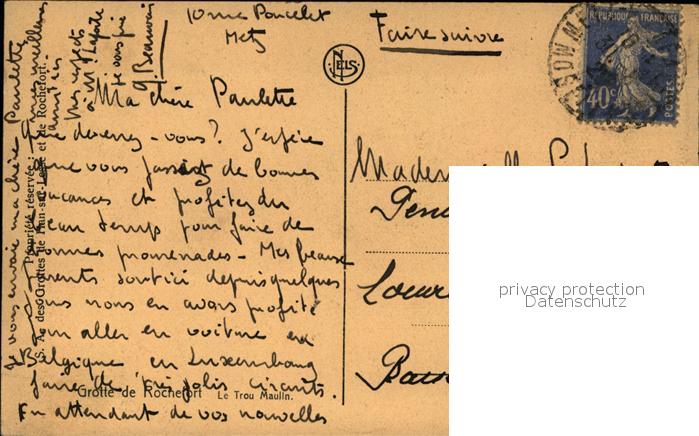 10 rue Poncelet
Metz
Faire suivre
REPUBLIQUE FRANÇAISE
40c
POSTES
NELS
Ma chère Paulette
Que devenez-vous? J'espère
que vous passez de bonnes
vacances et profitez du
beau temps pour faire de
bonnes promenades - Mes beaux
parents sont ici depuis quelques
jours nous en avons profité
pour aller en voiture en
Belgique en Luxembourg
faire de très jolis circuits.
En attendant de vos nouvelles
je vous envoie ma chère Paulette
amitiés
Mes respects
à M
je vous prie
G. Beauvais
Propriété réservée:
S. A. des Grottes de Han-sur-Lesse et de Rochefort.
Grotte de Rochefort Le Trou Maulin.
privacy protection
Datenschutz